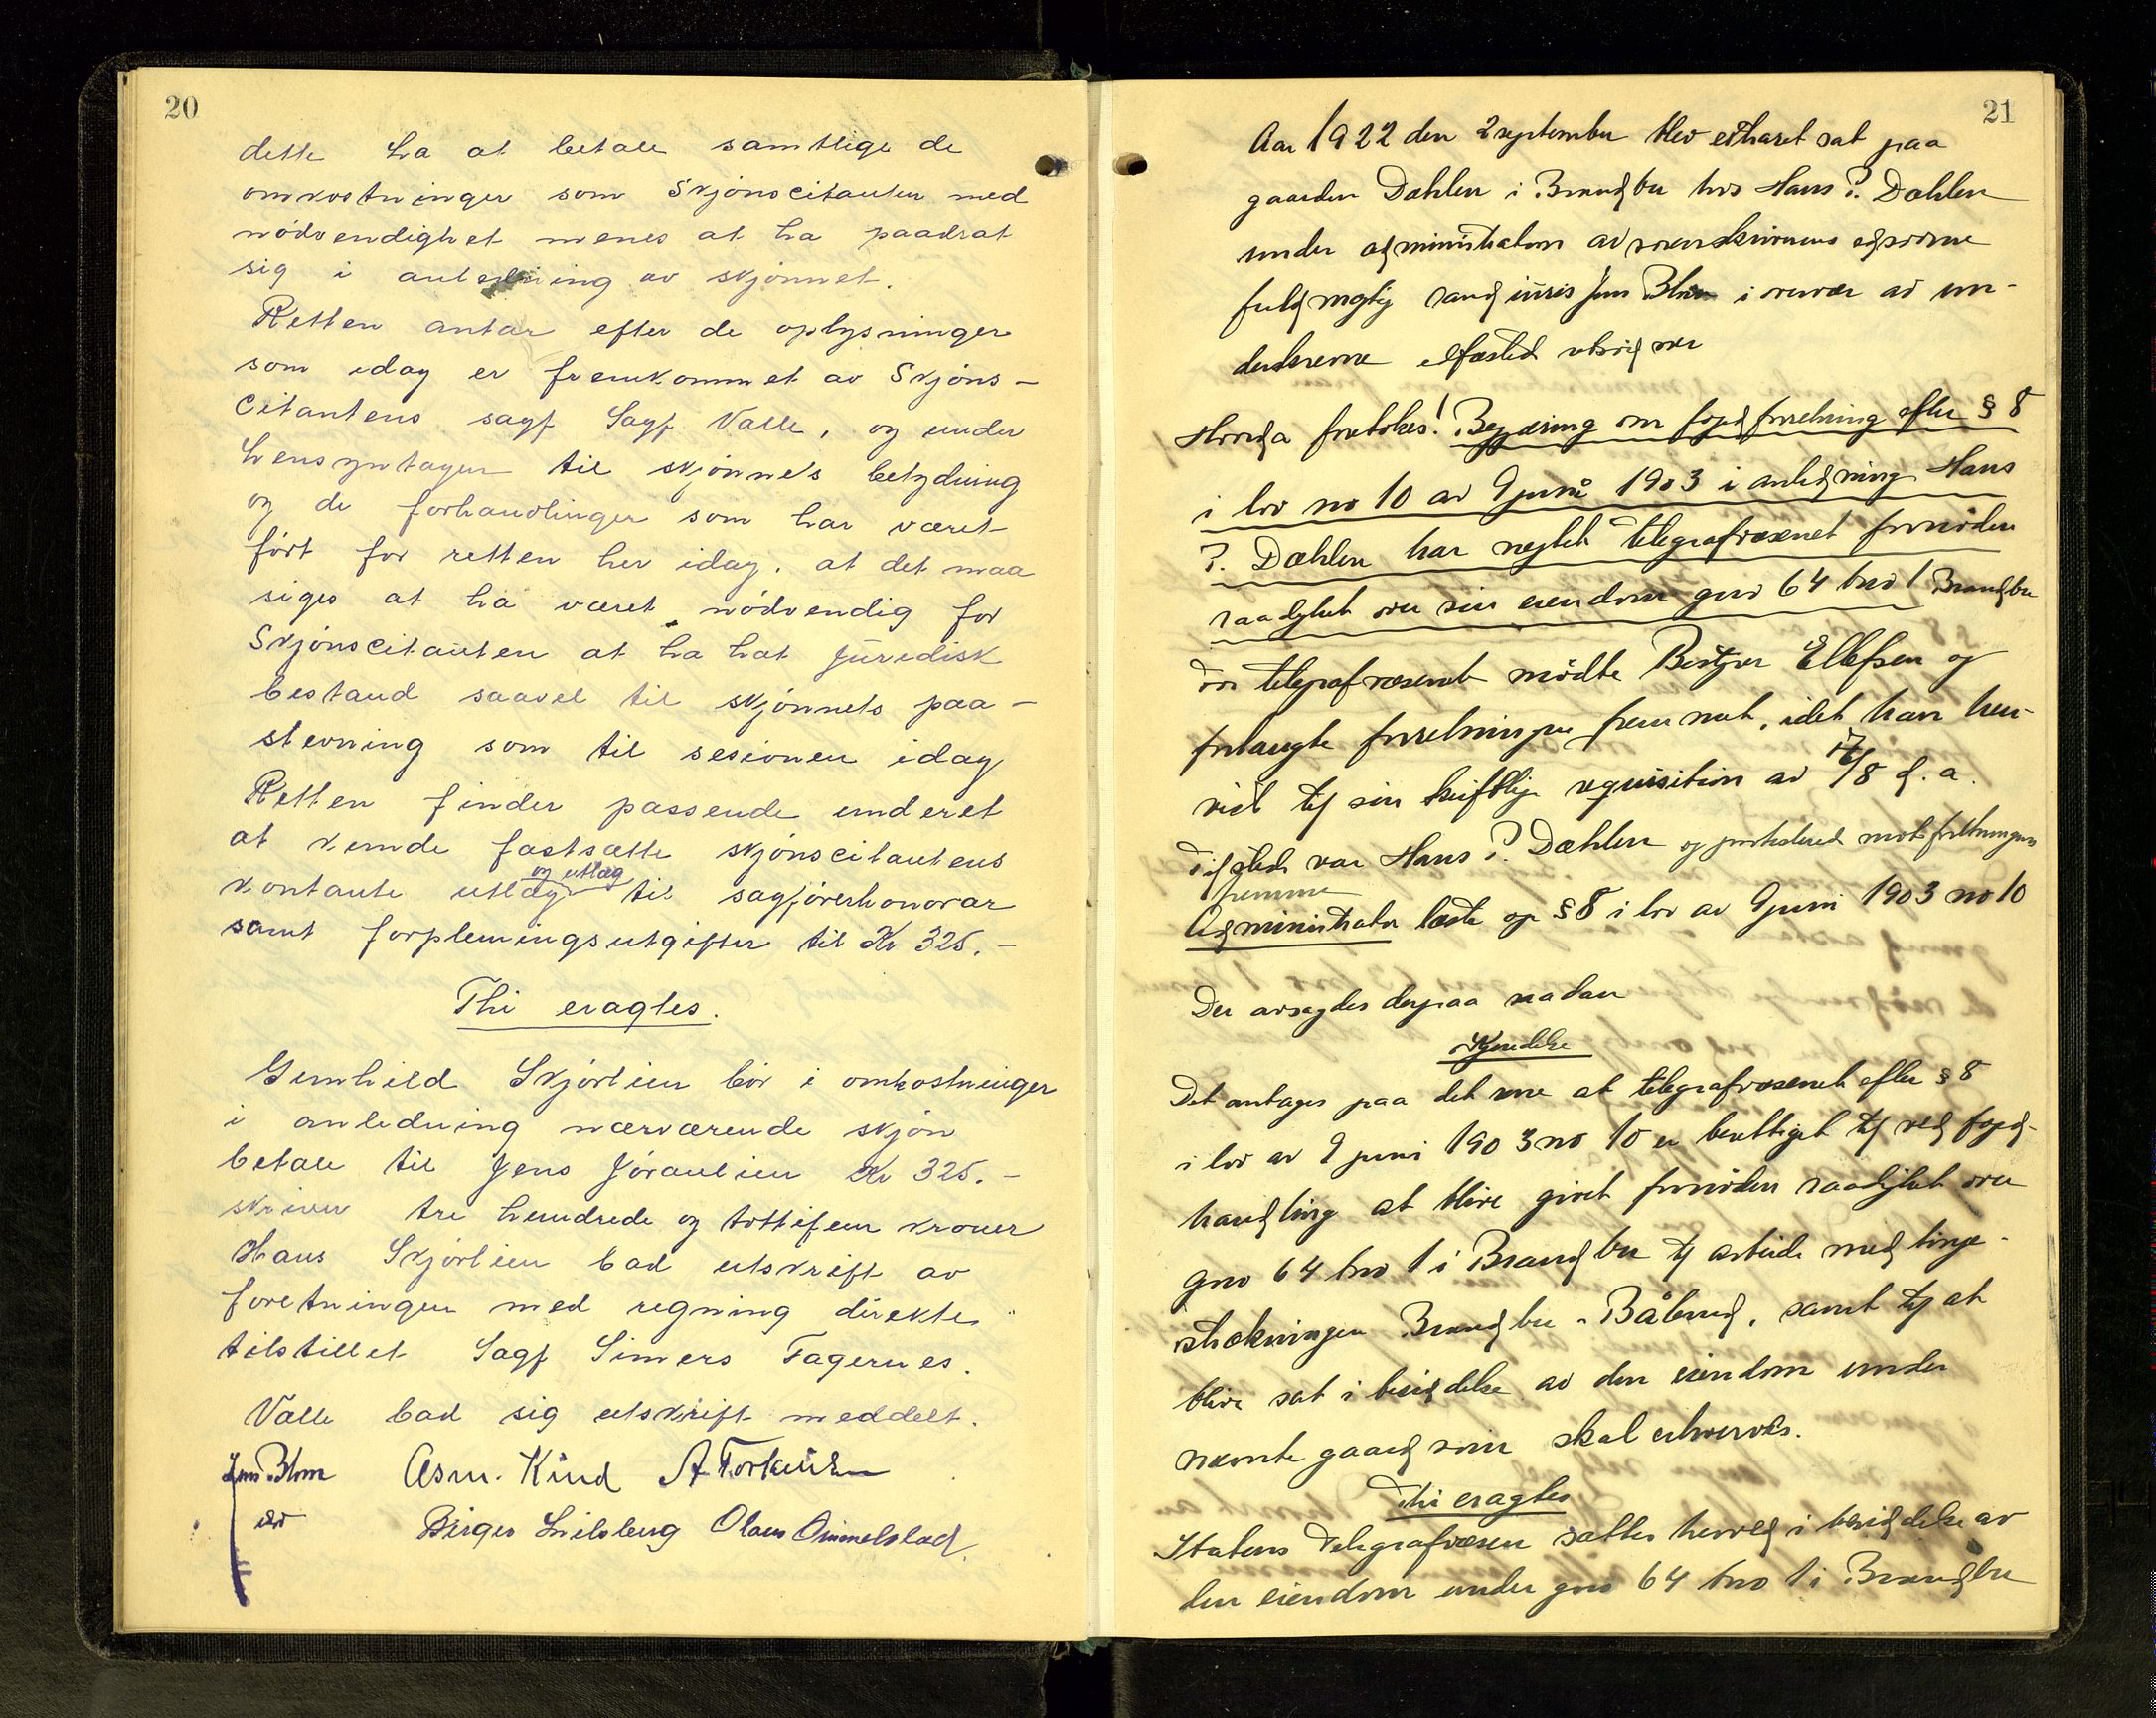 20
dette ha at betale samtlige de
omkostninger som Skjønscitanten med
nødvendighet menes at ha paadrat
sig i anledning av skjønnet.
Retten antar efter de oplysninger
som idag er fremkommet av Skjøns-
citantens sagf Sagf Valle, og under
hensyntagen til skjønnets betydning
og de forhandlinger som har været
ført for retten her idag. at det maa
siges at ha været nødvendig for
Skjønscitanten at ha hat juredisk
bestand saavel til skjønnets paa-
stevning som til sesionen idag
Retten finder passende underet
at kunde fastsætte skjønscitantens
og utlæg
kontante utlæg til sagførerhonorar
samt forpleiningsutgifter til Kr 325.-
Thi eragtes.
Gunhild Skjørlien bør i omkostninger
i anledning nærværende skjøn
betale til Jens Jøranlien Kr 325.-
skriver tre hundrede og tottifem kroner
Hans Skjørlien bad utskrift av
foretningen med regning direkte
tilstillet Sagf Simers Fagernes.
Valle bad sig utskrift meddelt.
Jens Blom Asm. Kind A Forkerud
Birger Lilsberg Olaus Ommelstad
21
Aar 1922 den 2 september blev etharet sat paa
gaarden Dæhlen i Brandbu hos Hans P. Dæhlen
under administration av sorenskriverens edsvorne
fuldmegtig cand juris Jens Blom i overvær av un-
dertegnede
Hvorda foretokes! Begjæring om fogdforretning efter § 8
i lov no 10 av 9 juni 1903 i anledning Hans
P. Dæhlen har negtet telegrafvæsenet fornøden
raadighet over sin eiendom gno 64 bno 1 Brandbu
For telegrafvæsenet mødte Bestyrer Ellefsen og
forlangte forretningen fremmet, idet han hen-
viste til sin skriftlige requisition av 17/8 d.a.
Tilstede var Hans P. Dæhlen og protesterede mot forretningens
fremme
Administrator læste op § 8 i lov av 9 juni 1903 no 10
Der avsagdes derpaa saadan
Kjendelse
Det antages paa det rene at telegrafvæsenet efter § 8
i lov av 9 juni 1903 no 10 er berettiget til ved fogd-
handling at blive givet fornøden raadighet over
gno 64 bno 1 i Brandbu til arbeide med linje-
strækningen Brandbu - Bålerud, samt til at
blive sat i besiddelse av den eiendom under
nævnte gaard som skal erhverves.
Thi eragtes
Statens Telegrafvæsen sættes herved i besiddelse av
den eiendom under gno 64 bno 1 i Brandbu